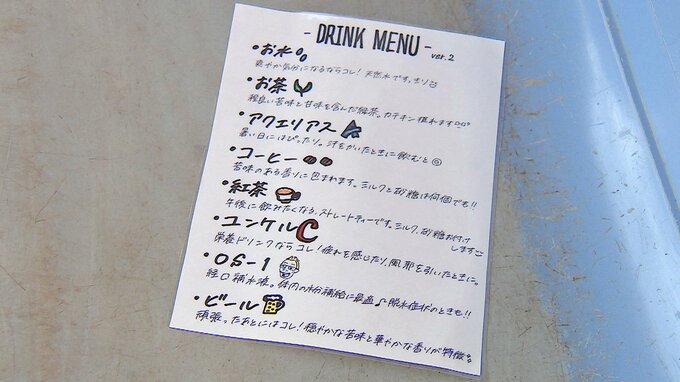 - DRINK MENU - ver.2
・お水
爽やか気分になるならコレ！天然水です。キリッ
・お茶
程良い苦味と甘味を含んだ緑茶。カテキン摂れます
・アクエリアス
暑い日にはぴったり。汗をかいたときに飲むと◎
・コーヒー
苦味のある香りに包まれます。ミルクと砂糖は何個でも!!
・紅茶
午後に飲みたくなる、ストレートティーです。ミルク、砂糖お付けします
・ユンケル C
栄養ドリンクならコレ！疲れを感じたり、風邪を引いたときに。
・OS-1
経口補水液。体内の水分補給に最適♪脱水症状のときも!!
・ビール
頑張ったあとにはコレ！穏やかな苦味と華やかな香りが特徴。